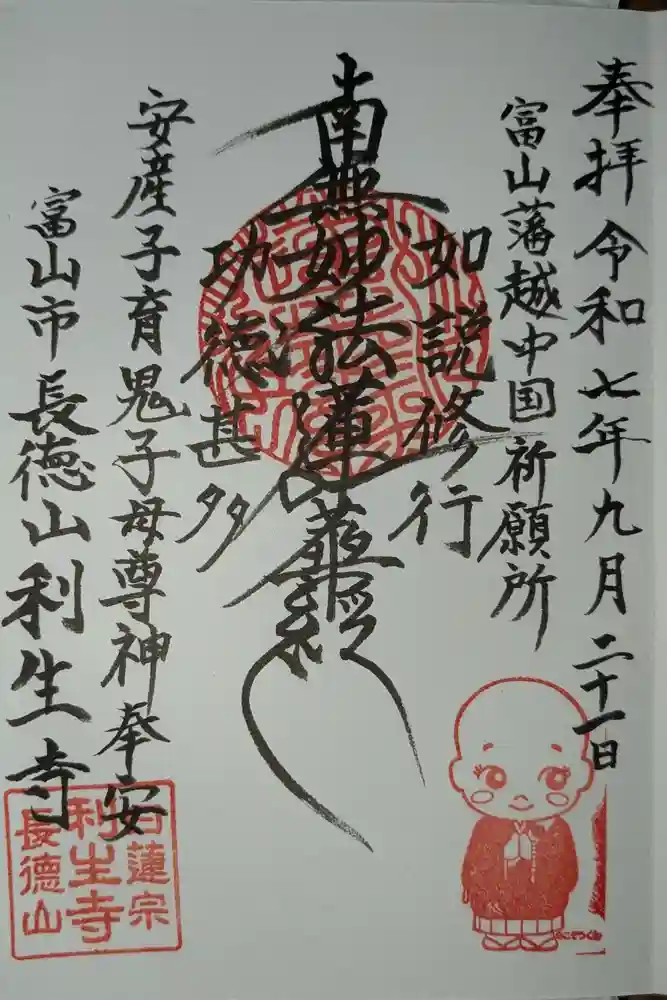 奉拝 令和七年九月二十一日
富山藩越中国祈願所
如説修行
南無妙法蓮華経
功徳甚多
安産子育鬼子母尊神奉安
富山市長徳山利生寺
日蓮宗
利生寺
長徳山